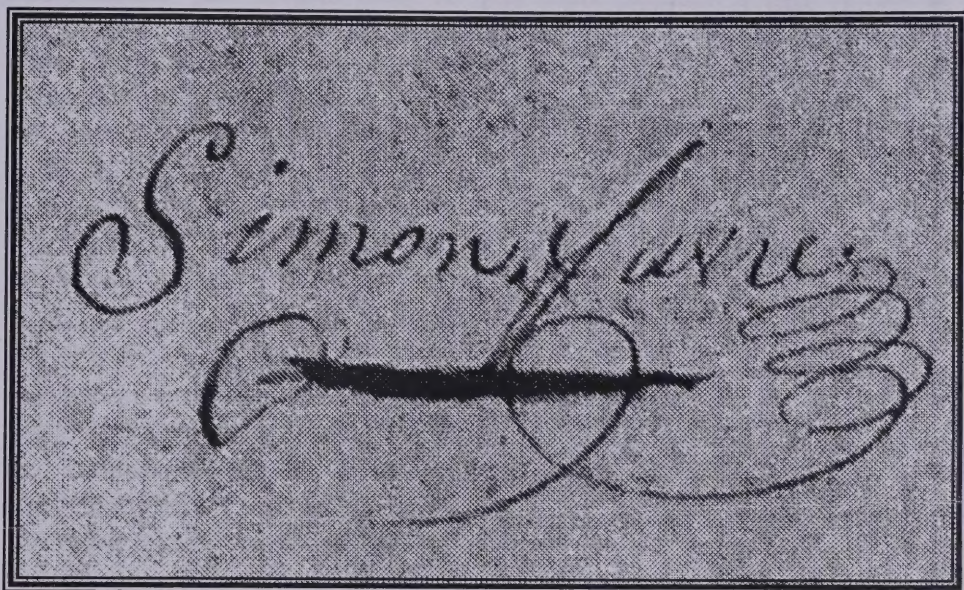 Simon, favre.